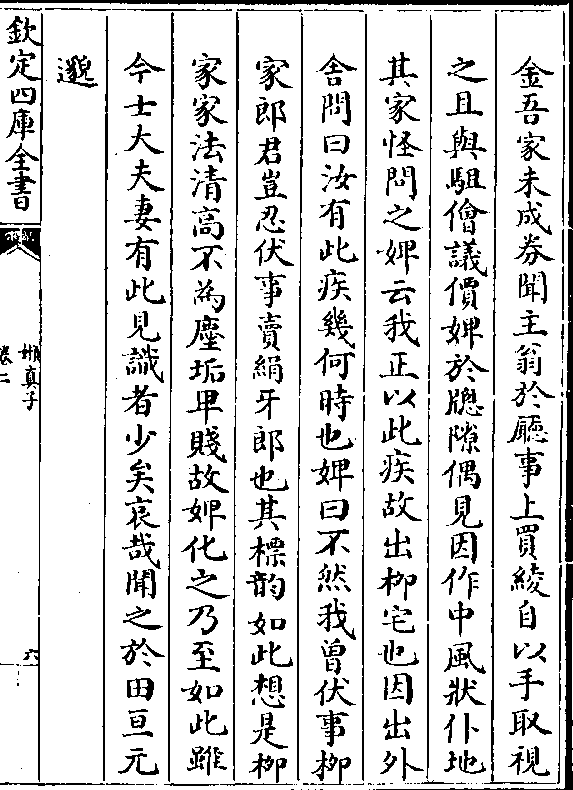 金吾家未成券聞主翁於廳事上買綾自以手取視
之且與駔儈議價婢於牎隙偶見因作中風狀仆地
其家怪問之婢云我正以此疾故出柳宅也因出外
舍問曰汝有此疾幾何時也婢曰不然我曽伏事柳
家郎君豈忍伏事賣絹牙郎也其標韵如此想是柳
家家法清高不為塵垢卑賤故婢化之乃至如此雖
今士大夫妻有此見識者少矣哀哉聞之於田亘元
邈
欽定四庫全書
嬾真子
卷二
六